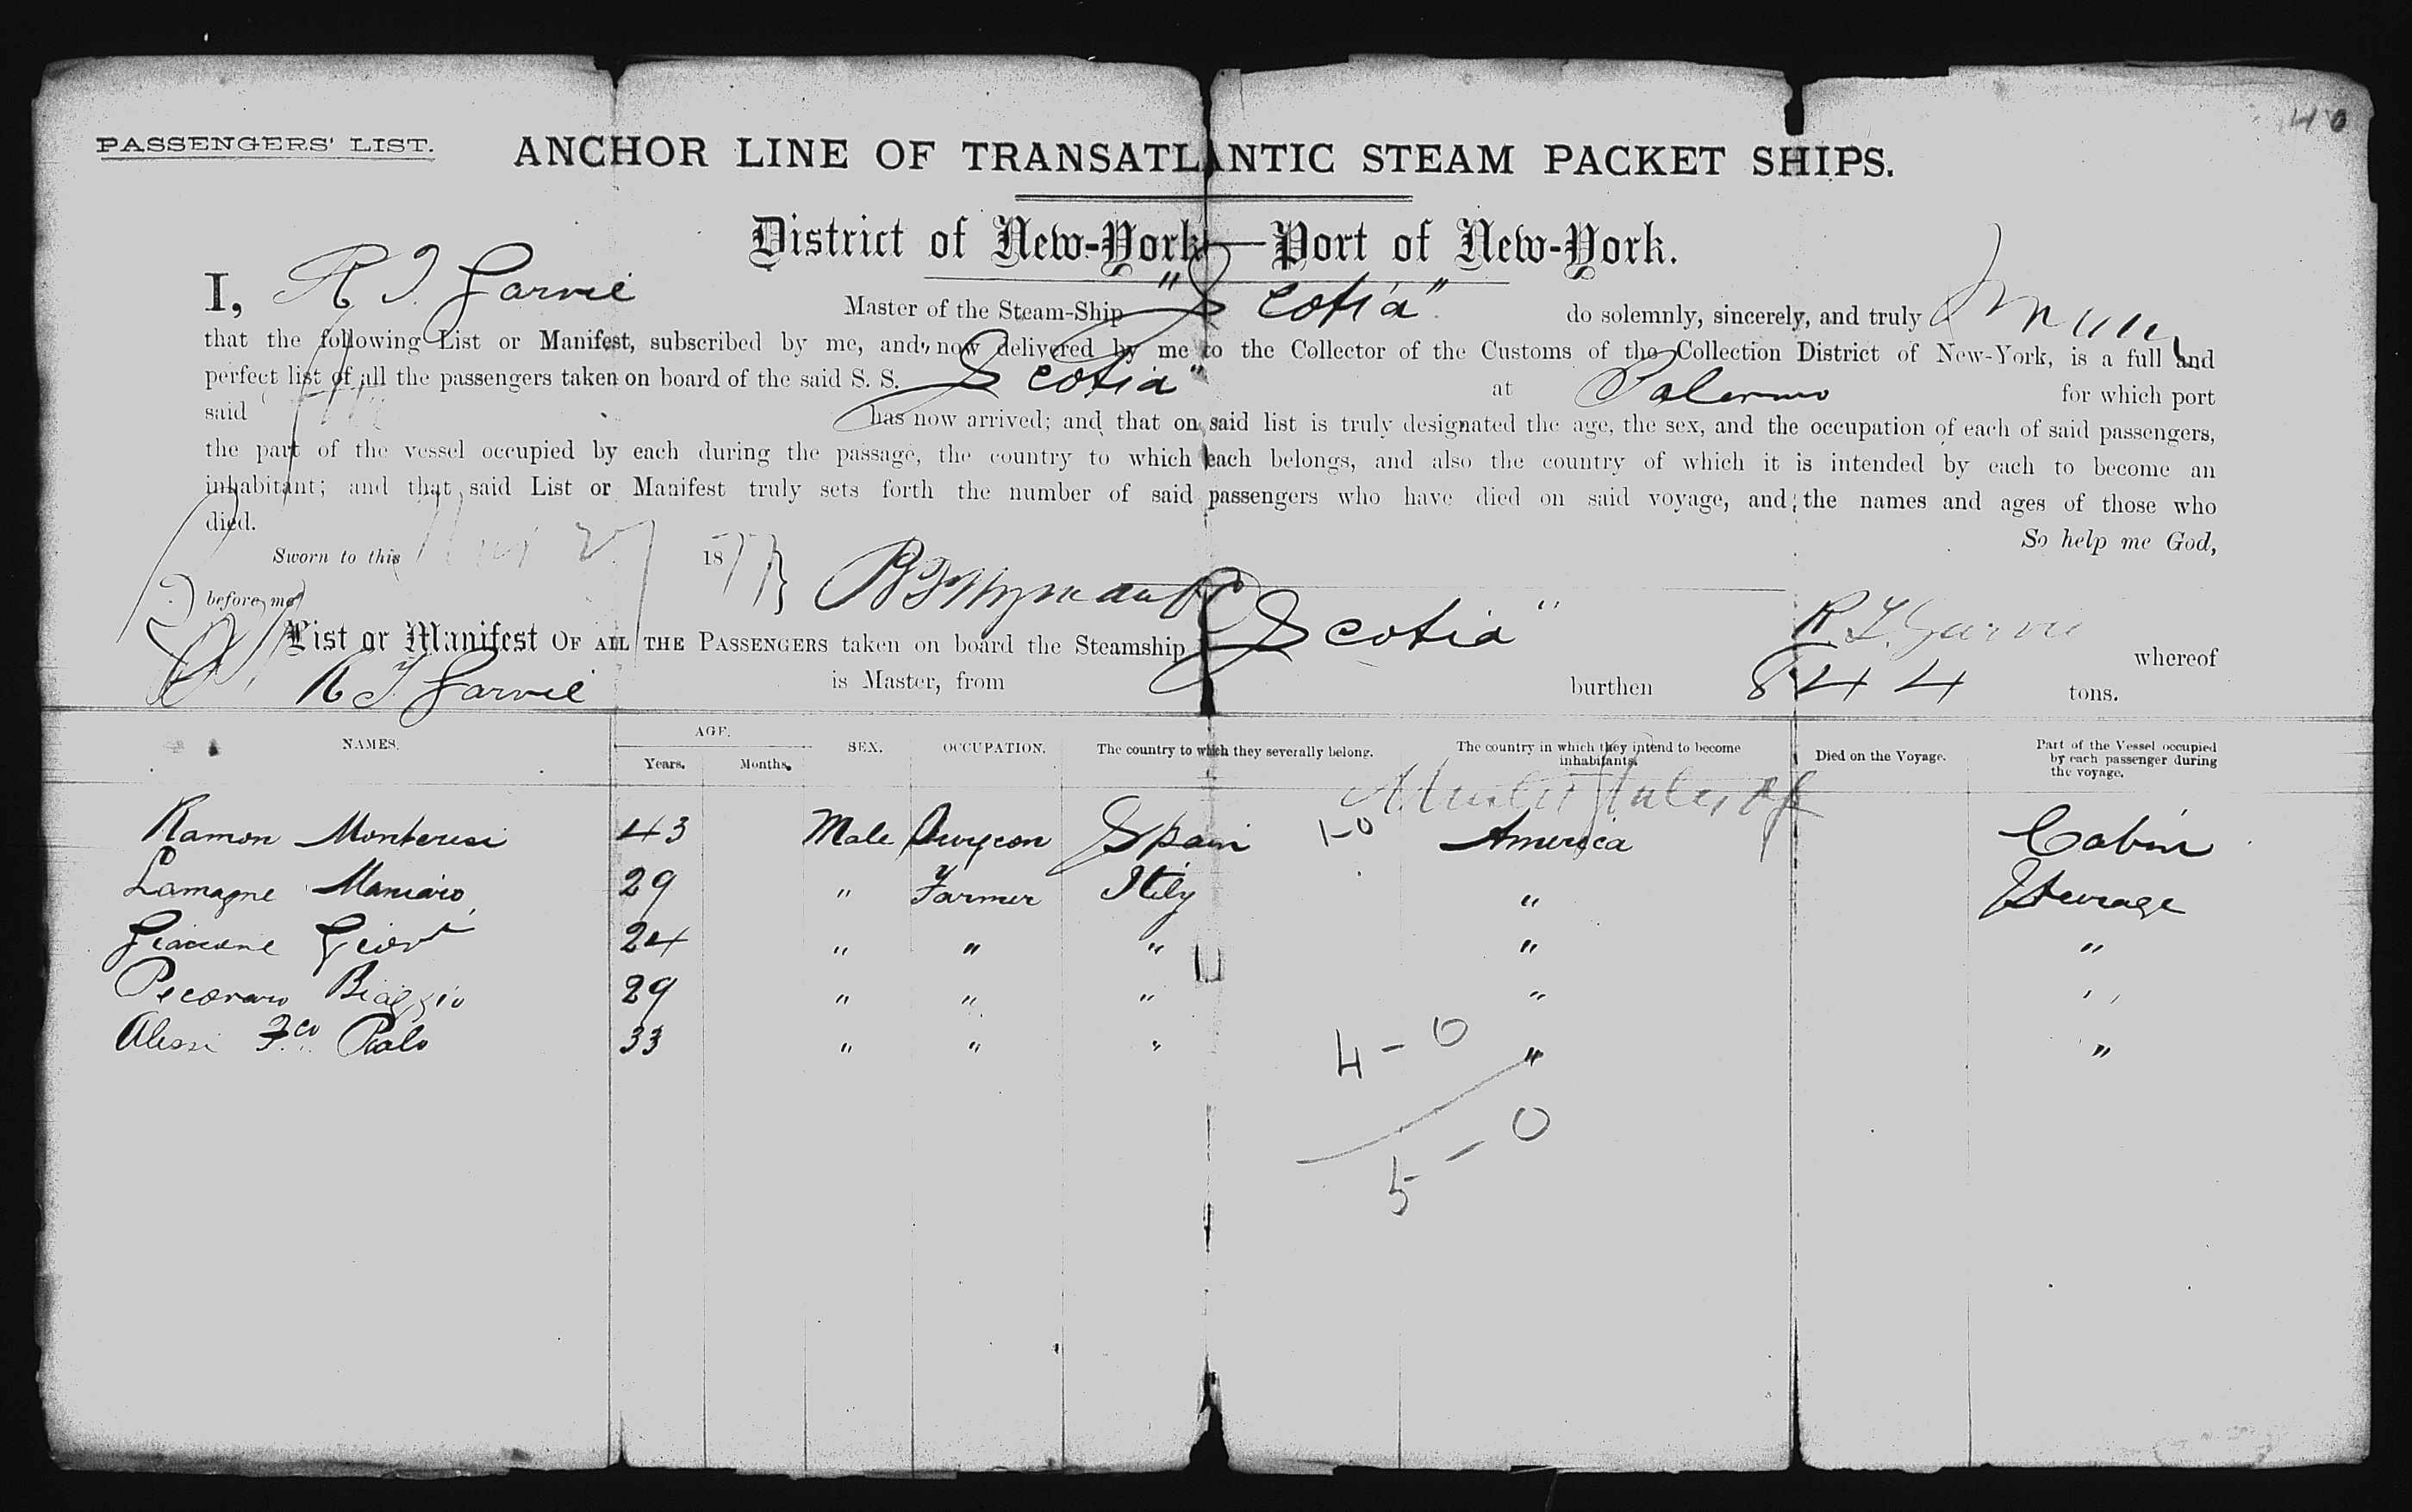 40
PASSENGERS' LIST. ANCHOR LINE OF TRANSATLANTIC STEAM PACKET SHIPS.
District of New-York—Port of New-York.
I, R T. Garvie Master of the Steam-Ship "Scotia" do solemnly, sincerely, and truly
that the following List or Manifest, subscribed by me, and now delivered by me to the Collector of the Customs of the Collection District of New-York, is a full and
perfect list of all the passengers taken on board of the said S. S. Scotia" at Palermo for which port
said has now arrived; and that on said list is truly designated the age, the sex, and the occupation of each of said passengers,
the part of the vessel occupied by each during the passage, the country to which each belongs, and also the country of which it is intended by each to become an
inhabitant; and that said List or Manifest truly sets forth the number of said passengers who have died on said voyage, and the names and ages of those who
died.
So help me God,
Sworn to this 1877
before me
R. T. Garvie
List or Manifest OF ALL THE PASSENGERS taken on board the Steamship Scotia" whereof
R T. Garvie is Master, from burthen 844 tons.
NAMES. AGE. Years. Months. SEX. OCCUPATION. The country to which they severally belong. The country in which they intend to become inhabitants. Died on the Voyage. Part of the Vessel occupied by each passenger during the voyage.
United States of
Ramon 43 Male Surgeon Spain 1-0 America Cabin
Lamagne 29 " Farmer Itily " Steerage
24 " " " " "
Pecoraro Biaggio 29 " " " " "
Alessi Fco. Palo 33 " " " 4-0 " "
5-0